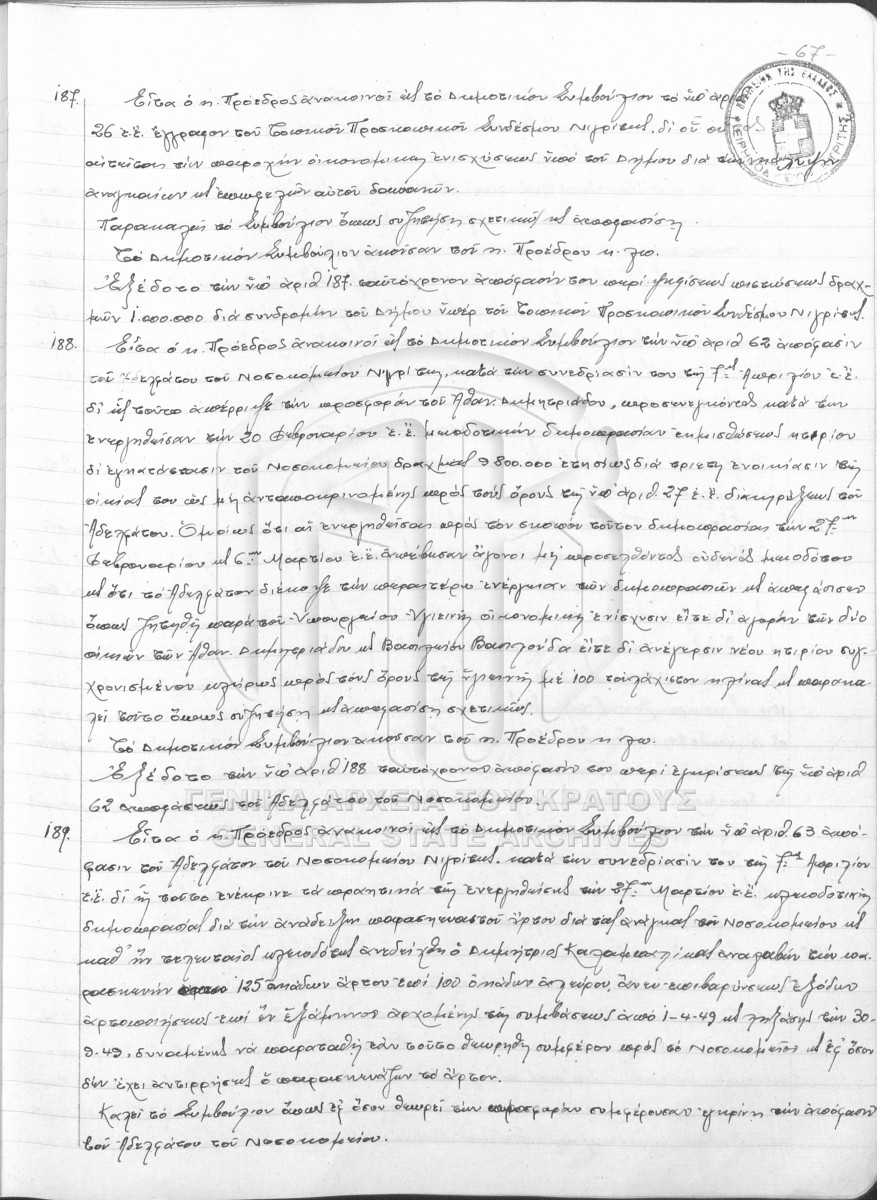 - 67 -
187. Εἶτα ὁ κ. Πρόεδρος ἀνακοινοῖ εἰς τὸ Δημοτικὸν Συμβούλιον τὸ ὑπ' ἀρ
26 ἐ.ἔ. ἔγγραφον τοῦ Τοπικοῦ Προσκοπικοῦ Συνδέσμου Νιγρίτης, δι' οὗ οὗτος
αἰτεῖται τὴν παροχὴν οἰκονομικῆς ἐνισχύσεως ὑπὸ τοῦ Δήμου διὰ τὴν κάλυψιν
ἀναγκαίων κ ἐπωφελῶν αὐτοῦ δαπανῶν.
Παρακαλεῖ τὸ Συμβούλιον ὅπως συζητήσῃ σχετικῶς κ ἀποφασίσῃ.
Τὸ Δημοτικὸν Συμβούλιον ἀκοῦσαν τοῦ κ. Προέδρου κ. λπ.
Ἐξέδοτο τὴν ὑπ' ἀριθ 187 ταὐτόχρονον ἀπόφασίν του περὶ ψηφίσεως πιστώσεως δραχ-
μῶν 1.000.000 διὰ συνδρομὴν τοῦ Δήμου ὑπὲρ τοῦ Τοπικοῦ Προσκοπικοῦ Συνδέσμου Νιγρίτης.
188. Εἶτα ὁ κ. Πρόεδρος ἀνακοινοῖ εἰς τὸ Δημοτικὸν Συμβούλιον τὴν ὑπ' ἀριθ 62 ἀπόφασιν
τοῦ Ἀδελφάτου τοῦ Νοσοκομείου Νιγρίτης, κατὰ τὴν συνεδρίασίν του τῆς 7ης Ἀπριλίου ἐ.ἔ.
δι' ἧς τοῦτο ἀπέρριψε τὴν προσφορὰν τοῦ Ἀθαν. Δημητριάδου, προσενεγκόντος κατὰ τὴν
ἐνεργηθεῖσαν τὴν 20 Φεβρουαρίου ἐ.ἔ. μειοδοτικὴν δημοπρασίαν ἐκμισθώσεως κτιρίου
δι' ἐγκατάστασιν τοῦ Νοσοκομείου δραχμὰς 9.800.000 ἐτησίως διὰ τριετῆ ἐνοικίασιν τῆς
οἰκίας του ὡς μὴ ἀνταποκρινομένης πρὸς τοὺς ὅρους τῆς ὑπ' ἀριθ. 27 ἐ.ἔ. διακηρύξεως τοῦ
Ἀδελφάτου. Ὁμοίως ὅτι αἱ ἐνεργηθεῖσαι πρὸς τὸν σκοπὸν τοῦτον δημοπρασίαι τὴν 27ην
Φεβρουαρίου κ 6ην Μαρτίου ἐ.ἔ. ἀπέβησαν ἄγονοι μὴ προσελθόντος οὐδενὸς μειοδότου
κ ὅτι τὸ Ἀδελφᾶτον διέκοψε τὴν περαιτέρω ἐνέργειαν τῶν δημοπρασιῶν κ ἀπεφάσισεν
ὅπως ζητηθῇ παρὰ τοῦ Ὑπουργείου Ὑγιεινῆς οἰκονομικὴ ἐνίσχυσιν εἴτε δι' ἀγορὰν τῶν δύο
οἰκιῶν τῶν Ἀθαν. Δημητριάδου κ Βασιλείου εἴτε δι' ἀνέγερσιν νέου κτιρίου συγ-
χρονισμένου πλήρως πρὸς τοὺς ὅρους τῆς ὑγιεινῆς μὲ 100 τοὐλάχιστον κλίνας κ παρακα-
λεῖ τοῦτο ὅπως συζητήσῃ κ ἀποφασίσῃ σχετικῶς.
Τὸ Δημοτικὸν Συμβούλιον ἀκοῦσαν τοῦ κ. Προέδρου κ λπ.
Ἐξέδοτο τὴν ὑπ' ἀριθ 188 ταὐτόχρονον ἀπόφασίν του περὶ ἐγκρίσεως τῆς ὑπ' ἀριθ
62 ἀποφάσεως τοῦ Ἀδελφάτου τοῦ Νοσοκομείου.
189. Εἶτα ὁ κ. Πρόεδρος ἀνακοινοῖ εἰς τὸ Δημοτικὸν Συμβούλιον τὴν ὑπ' ἀριθ. 63 ἀπό-
φασιν τοῦ Ἀδελφάτου τοῦ Νοσοκομείου Νιγρίτης κατὰ τὴν συνεδρίασίν του τῆς 7ης Ἀπριλίου
ἐ.ἔ. δι' ἧς τοῦτο ἐνέκρινε τὰ πρακτικὰ τῆς ἐνεργηθείσης τὴν 27ην Μαρτίου ἐ.ἔ. μειοδοτικῆς
δημοπρασίας διὰ τὴν ἀνάδειξιν παρασκευαστοῦ ἄρτου διὰ τὰς ἀνάγκας τοῦ Νοσοκομείου κ
καθ' ἣν τελευταῖος μειοδότης ἀνεδείχθη ὁ Δημήτριος ἀναλαβὼν τὴν πα-
ρασκευὴν 125 ὀκάδων ἄρτου ἐπὶ 100 ὀκάδων ἀλεύρου, ἄνευ ἐπιβαρύνσεως ἐξόδων
ἀρτοποιήσεως ἐπὶ ἓν ἑξάμηνον ἀρχομένης τῆς συμβάσεως ἀπὸ 1-4-49 κ ληξάσης τὴν 30-
9-49, δυναμένης νὰ παραταθῇ ἐὰν τοῦτο θεωρηθῇ συμφέρον πρὸς τὸ Νοσοκομεῖον κ ἐφ' ὅσον
δὲν ἔχει ἀντιρρήσεις ὁ παρασκευάζων τὸ ἄρτον.
Καλεῖ τὸ Συμβούλιον ὅπως ἐφ' ὅσον θεωρεῖ τὴν προσφορὰν συμφέρουσαν ἐγκρίνῃ τὴν ἀπόφασιν
τοῦ Ἀδελφάτου τοῦ Νοσοκομείου.
ΓΕΝΙΚΑ ΑΡΧΕΙΑ ΤΟΥ ΚΡΑΤΟΥΣ
GENERAL STATE ARCHIVES